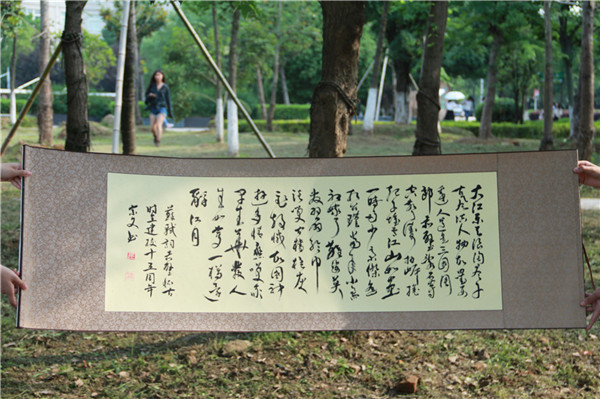 大江东去浪淘尽千
古风流人物故垒西
边人道是三国周
郎赤壁乱石穿
空惊涛拍岸捲
起千堆雪江山如画
一时多少豪杰遥
想公瑾当年小乔
初嫁了雄姿英
发羽扇纶巾
谈笑间樯橹灰
飞烟灭故国神
游多情应笑我
早生华发人
生如梦一樽还
酹江月
苏轼词赤壁怀古
时至建校十五周年
宗文书